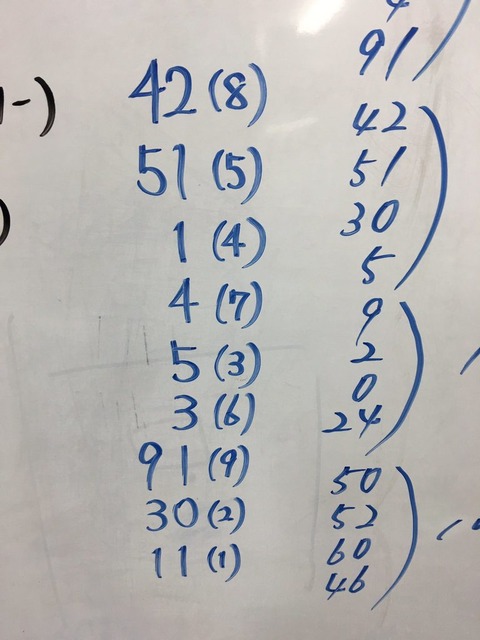 42 (8)
51 (5)
1 (4)
4 (7)
5 (3)
3 (6)
91 (9)
30 (2)
11 (1)
91
42
51
30
5
9
2
0
24
50
52
60
46